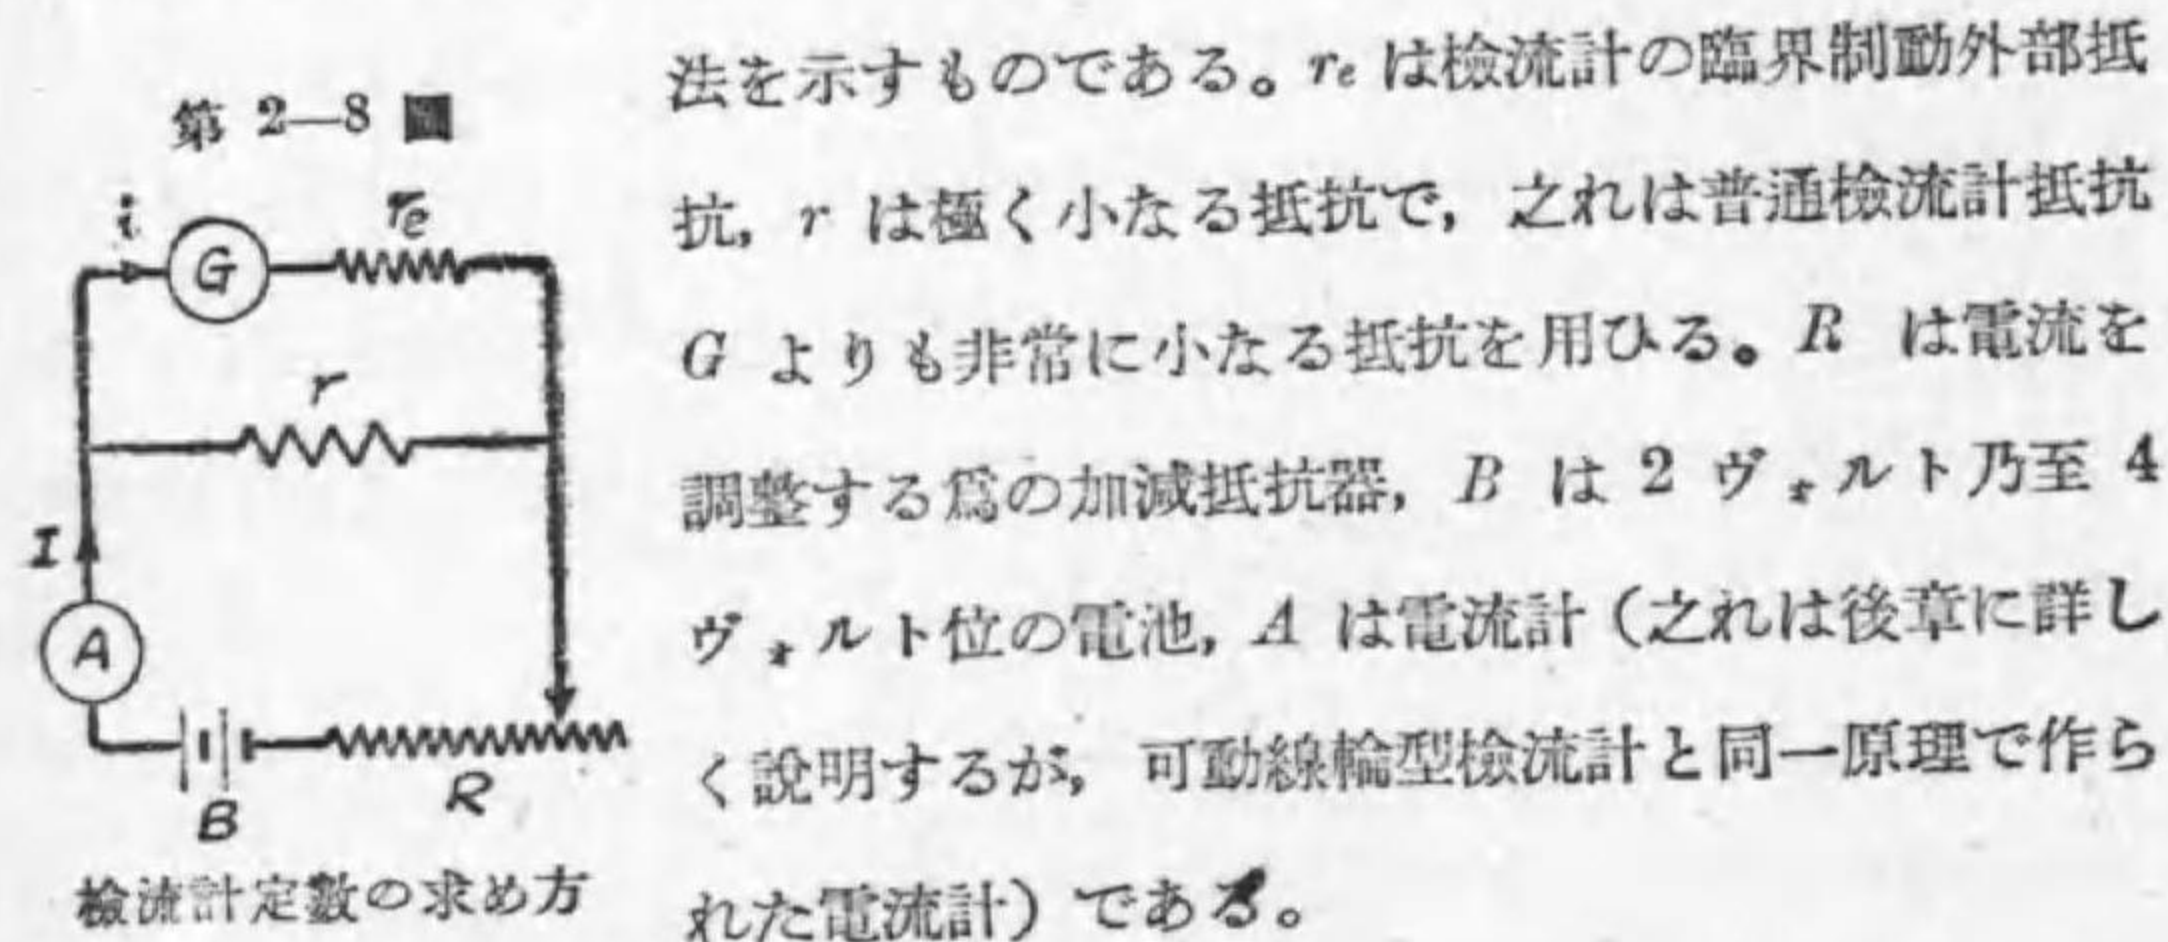 第 2—8 圖
i
re
G
r
I
A
B
R
檢流計定數の求め方
法を示すものである。re は檢流計の臨界制動外部抵
抗, r は極く小なる抵抗で, 之れは普通檢流計抵抗
G よりも非常に小なる抵抗を用ひる。R は電流を
調整する爲の加減抵抗器, B は 2 ヴォルト乃至 4
ヴォルト位の電池, A は電流計 (之れは後章に詳し
く說明するが, 可動線輪型檢流計と同一原理で作ら
れた電流計) である。